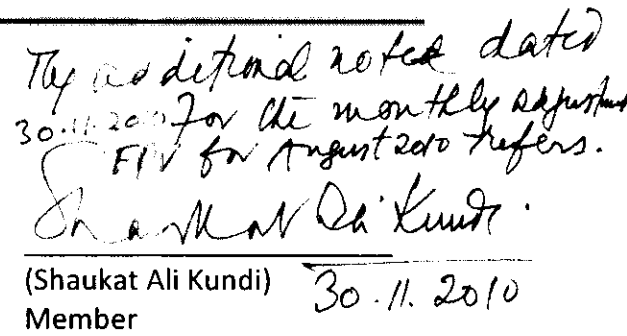 My additional note dated
30.11.2010 For the monthly adjustment
for August 2010 refers.
Shaukat Ali Kundi.
(Shaukat Ali Kundi) 30.11.2010
Member